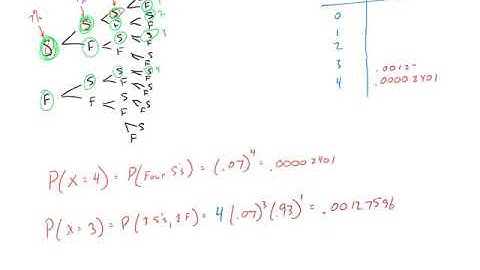 7%
S S S S 1
F 2
F S 3
F
S
F S
F
F S S S 4
F
F S
F
F S
F
S
F
0
1
2
3 .0012
4 .00002401
P(X=4) = P(Four S's) = (.07)^4 = .00002401
P(X=3) = P(3 S's, 1F) = 4(.07)^3(.93)^1 = .00127596